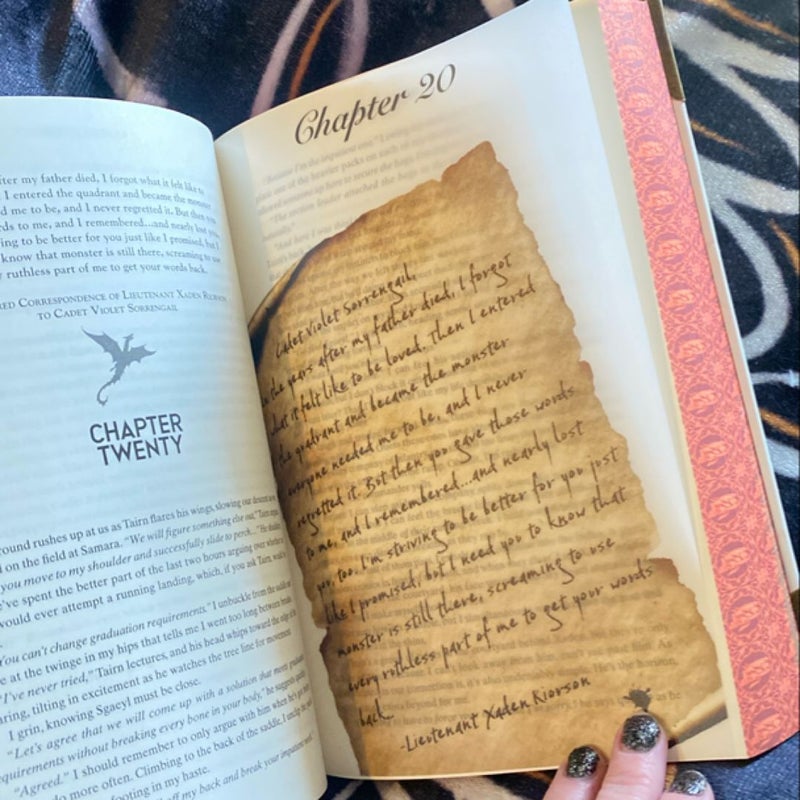 ter my father died, I forgot what it felt like to
I entered the quadrant and became the monster
d me to be, and I never regretted it. But then you
rds to me, and I remembered...and nearly lost you,
ing to be better for you just like I promised, but I
know that monster is still there, screaming to use
ruthless part of me to get your words back.
RED CORRESPONDENCE OF LIEUTENANT XADEN RIORSON
TO CADET VIOLET SORRENGAIL
CHAPTER
TWENTY
round rushes up at us as Tairn flares his wings, slowing our descent
on the field at Samara. "We will figure something else out," Tairn
you move to my shoulder and successfully slide to perch..." He
've spent the better part of the last two hours arguing over whether
would ever attempt a running landing, which, if you ask Tairn,
You can't change graduation requirements." I unbuckle from the saddle
e at the twinge in my hips that tells me I went too long between
"I've never tried," Tairn lectures, and his head whips toward the edge of
aring, tilting in excitement as he watches the tree line for movement
I grin, knowing Sgaeyl must be close.
"Let's agree that we will come up with a solution that most
quirements without breaking every bone in your body," he suggests
"Agreed." I should remember to only argue with him when he's
do more often. Climbing to the back of the saddle, I
footing in my haste.
off my back and break your
Chapter 20
Cadet Violet Sorrengail,
the years after my father died, I forgot
what it felt like to be loved. Then I entered
the quadrant and became the monster
everyone needed me to be, and I never
regretted it. But then you gave those words
to me, and I remembered...and nearly lost
you, too. I'm striving to be better for you just
like I promised, but I need you to know that
monster is still there, screaming to use
every ruthless part of me to get your words
back.
-Lieutenant Xaden Riorson